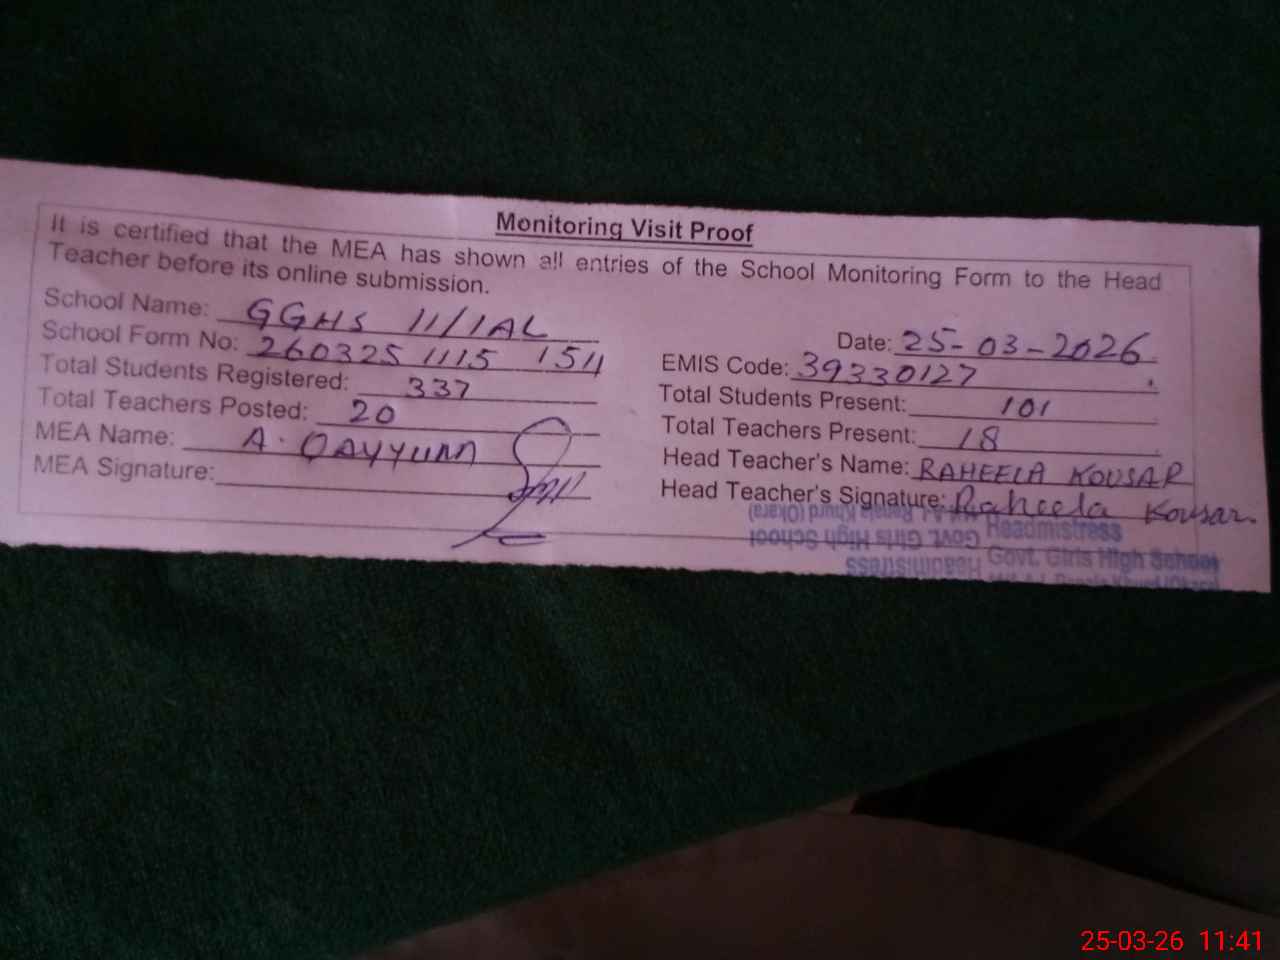 Monitoring Visit Proof
It is certified that the MEA has shown all entries of the School Monitoring Form to the Head
Teacher before its online submission.
School Name: GGHS 11/1AL
Date: 25-03-2026
School Form No: 260325 1115 1511
EMIS Code: 39330127
Total Students Registered: 337
Total Students Present: 101
Total Teachers Posted: 20
Total Teachers Present: 18
MEA Name: A. QAYYUM
Head Teacher's Name: RAHEELA KOUSAR
MEA Signature:
Head Teacher's Signature: Raheela Kousar
Headmistress
Govt. Girls High School
Renala Khurd (Okara)
Headmistress
Govt. Girls High School
25-03-26 11:41